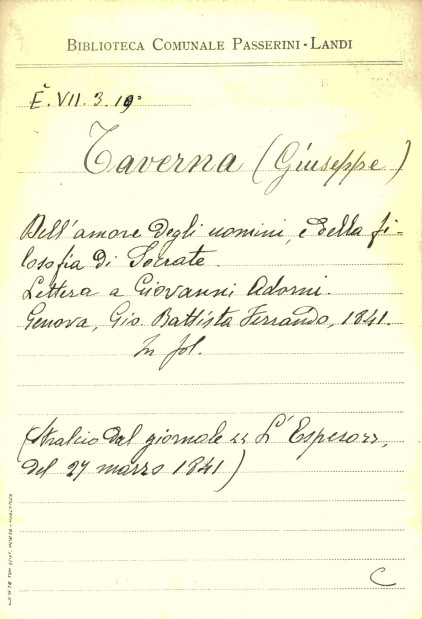 BIBLIOTECA COMUNALE PASSERINI-LANDI
E. VII. 3. 19º
Taverna (Giuseppe)
Dell'amore degli uomini, e della fi-
losofia di Socrate.
Lettera a Giovanni Adorni.
Genova, Gio. Battista Ferrando, 1841.
In fol.
(Stralcio dal giornale << L'Espero >>,
del 27 marzo 1841)
C